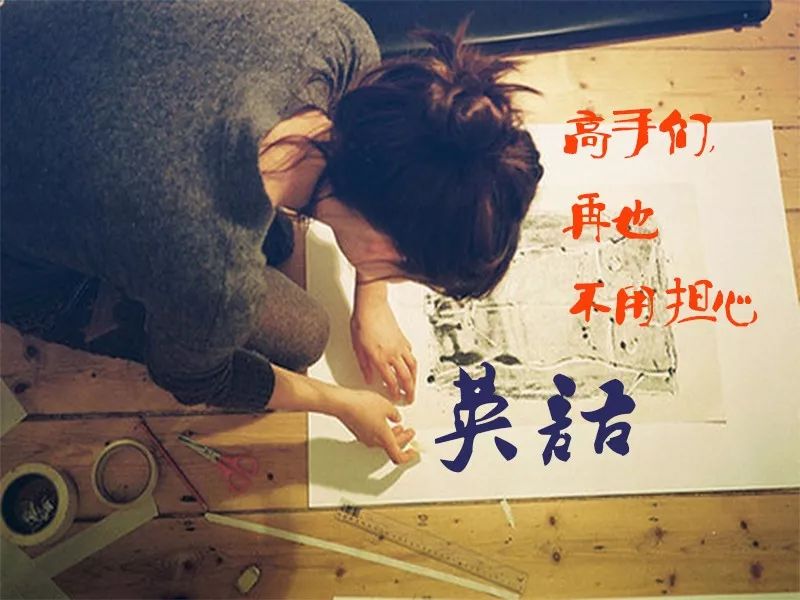 高手们,
再也
不用担心
英話